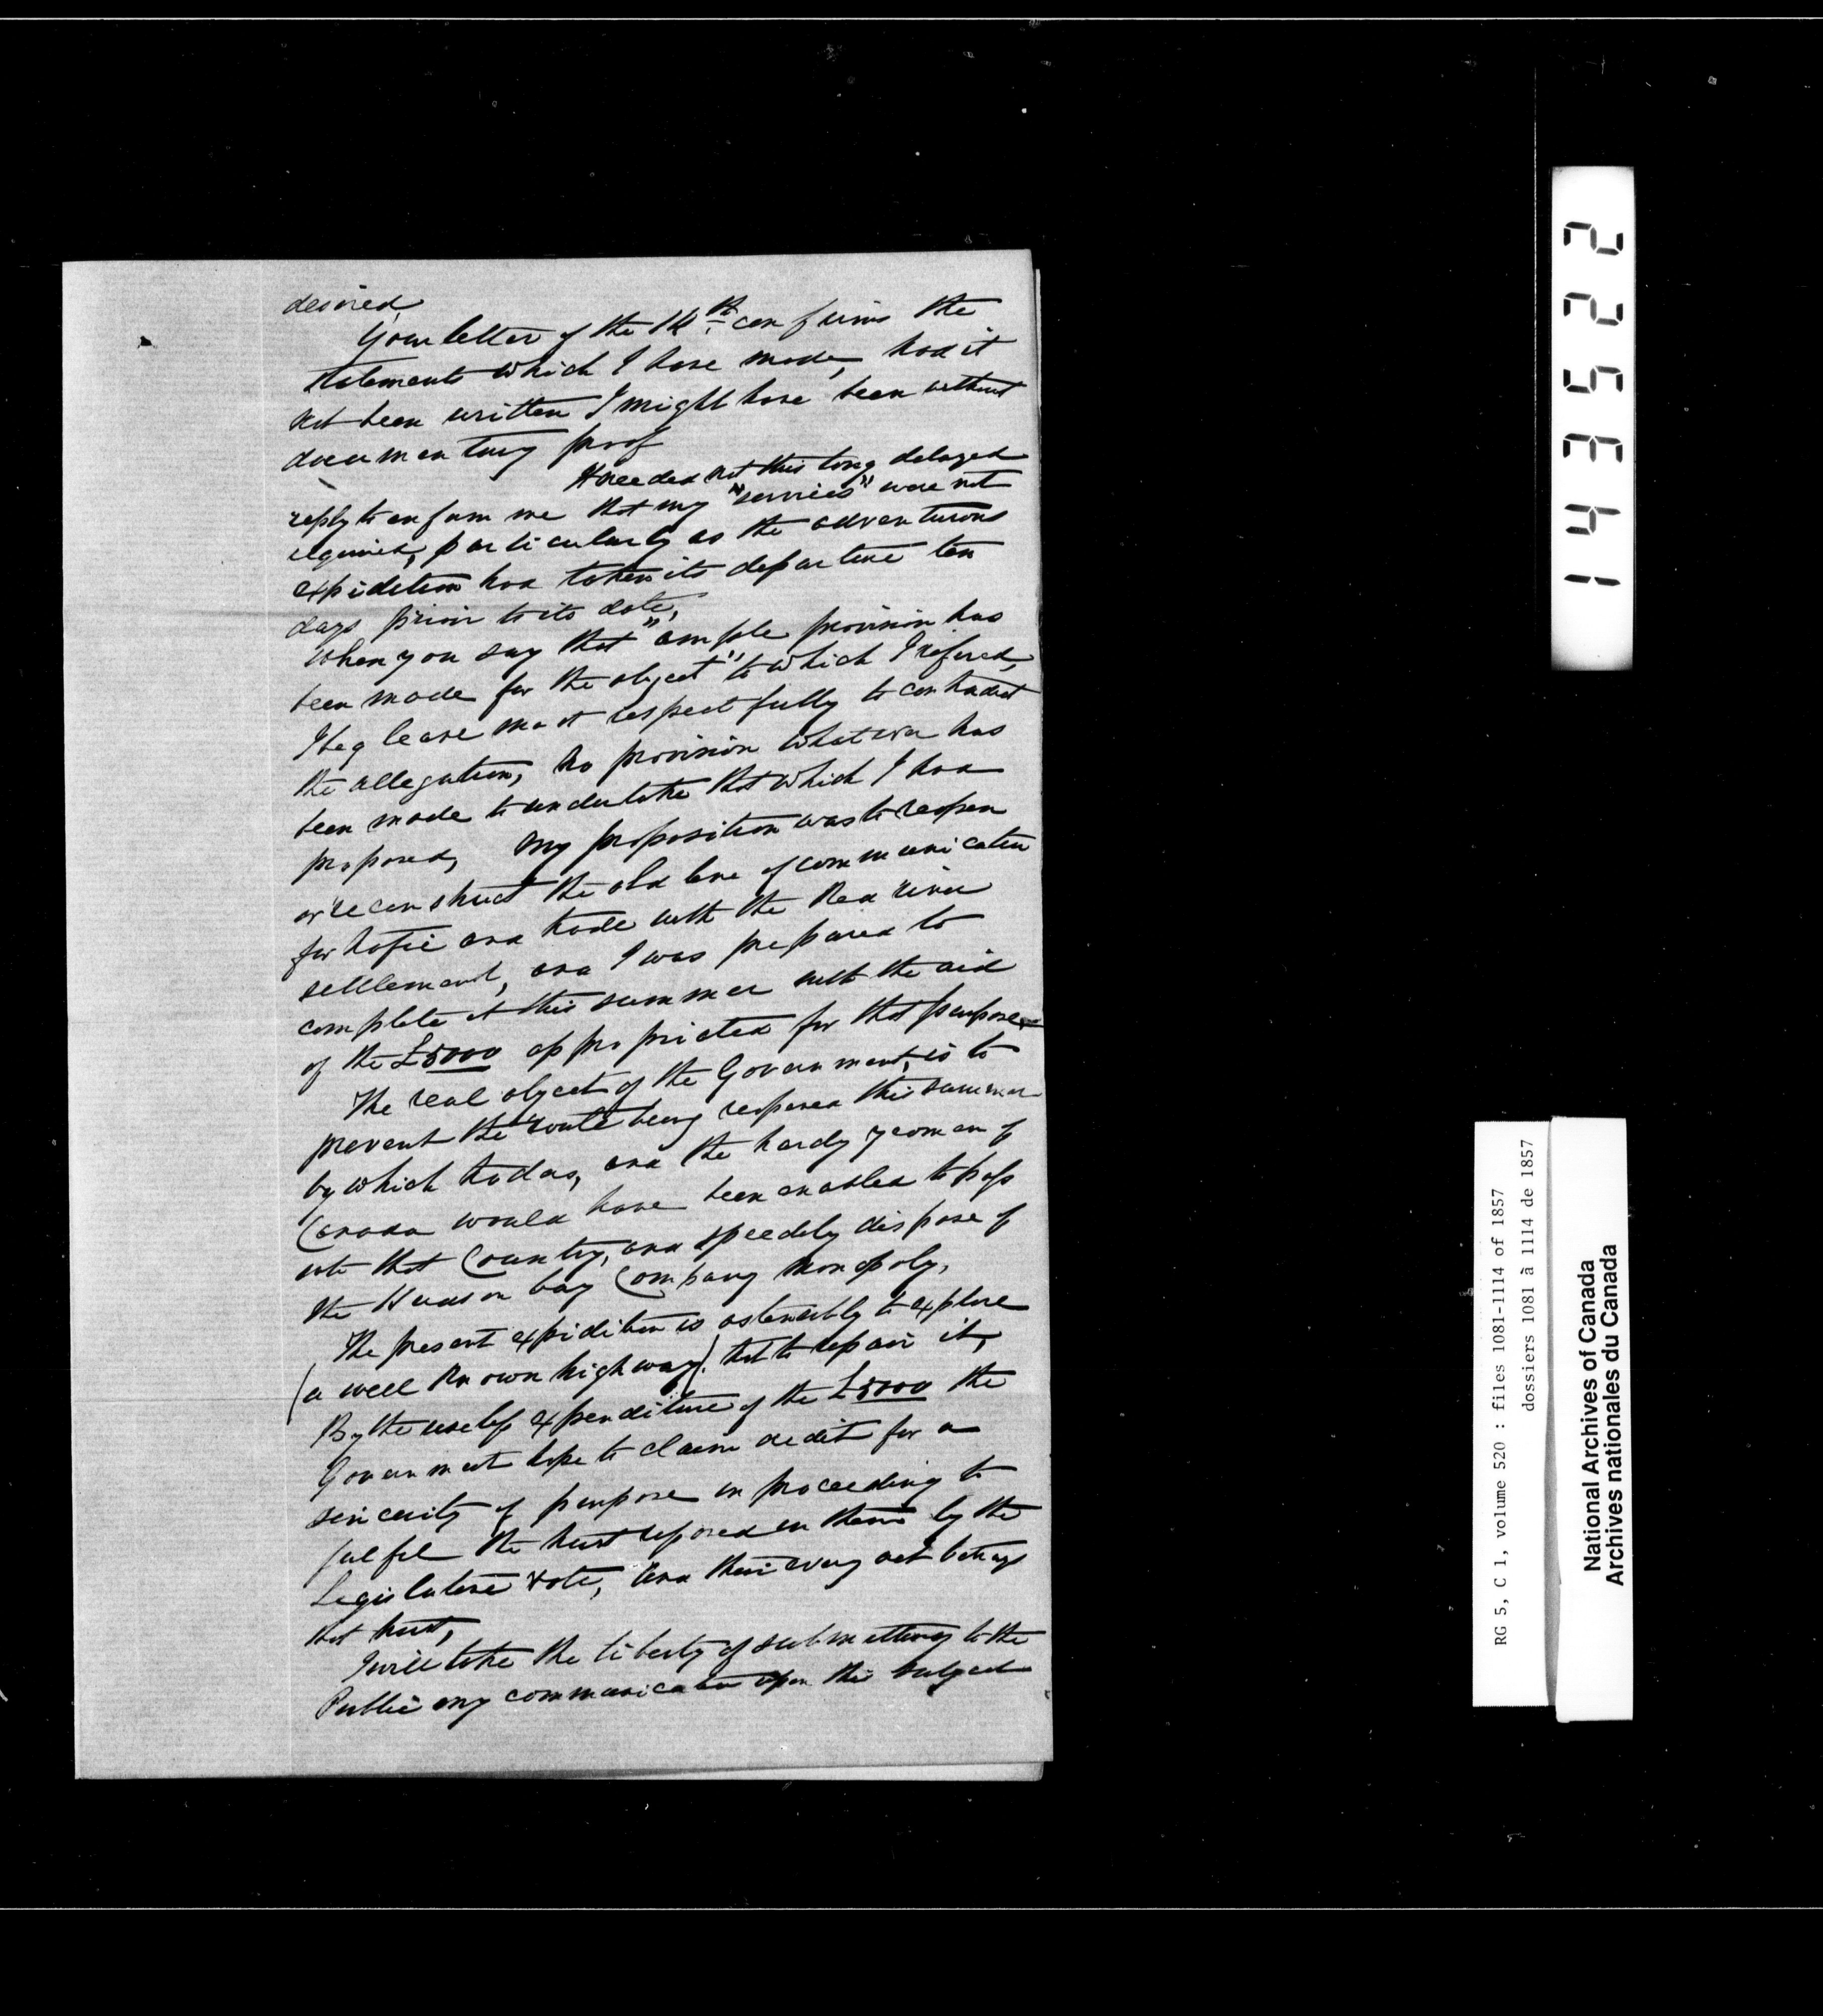 desired,
Your letter of the 14th. confirms the
statements which I have made, had it
not been written I might have been without
documentary proof
It needed not this long delayed
reply to enform me that my "services" were not
required, particularly as the adventurous
expidetion had taken its departure ten
days prior to its date,
When you say that "ample provision has
been made for the object", to which I refered,
I beg leave most respectfully to contradict
the allegation, No provision whatever has
been made to undertake that which I had
proposed, My proposition was to reopen
or reconstruct the old line of communication
for trafic and trade with the Red river
settlement, and I was prepared to
complete it this summer with the aid
of the £5000 appropriated for that purpose
The real object of the Government, is to
prevent the route being reopened this summer
by which traders, and the hardy yeomen of
Canada would have been enabled to pass
into that Country, and speedely dispose of
the Hudson bay Company monopoly,
The present expidition is ostensibly to explore
(a well known highway). not to repair it,
By the useless expenditure of the £5000 the
Government hope to claim credit for a
sincerity of purpose in proceeding to
fulfil the trust reposed in them by the
Legislative vote, And their every act betrays
that trust,
I will take the liberty of submitting to the
Public my communication upon this subject
143522
RG 5, C 1, volume 520 : files 1081-1114 of 1857
dossiers 1081 à 1114 de 1857
National Archives of Canada
Archives nationales du Canada